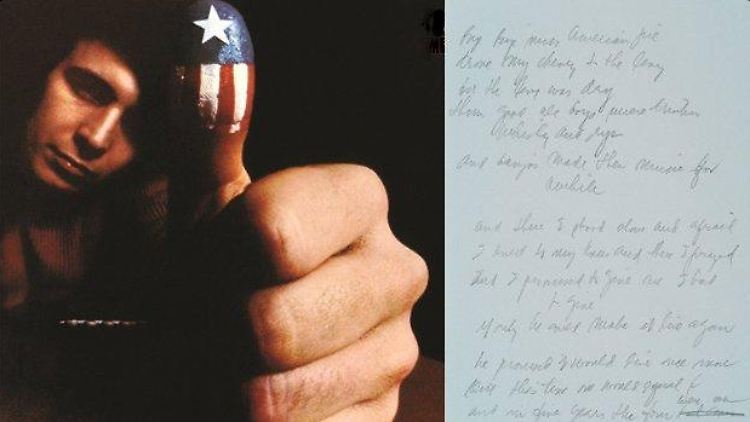 Bye Bye miss American pie
drove my chevy to the levy
but the levy was dry
them good ole boys were drinkin
Whisky and rye
and banjos made their music for
awhile
and there I stood alone and afraid
I to my knees and there I prayed
And I promised to give all I had
to give
If only he would make it live again
he promised it would live once more
But this time one would equal 4
and in five years the four